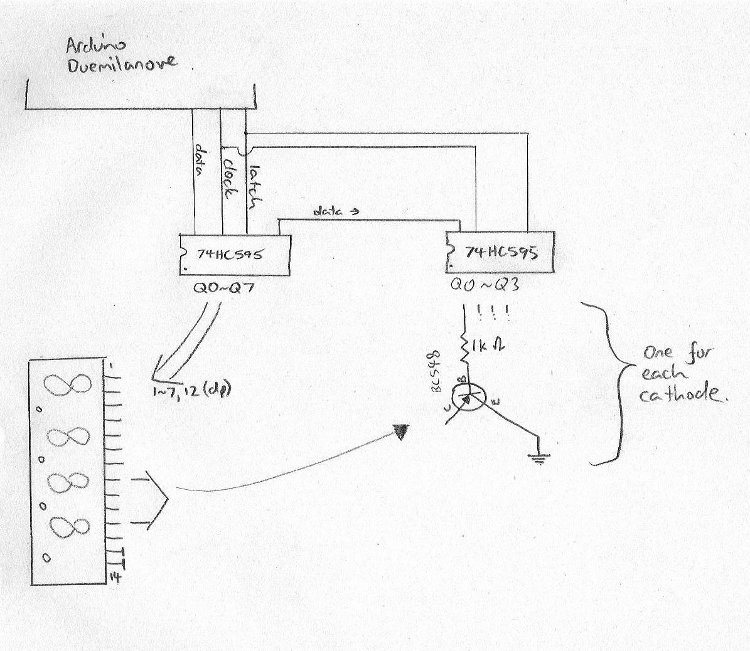 Arduino
Duemilanove
data
clock
latch
data →
74HC595
74HC595
Q0~Q7
Q0~Q3
1kΩ
BC548
B
C
E
1~7,12 (dp)
1
14
One for
each
cathode.